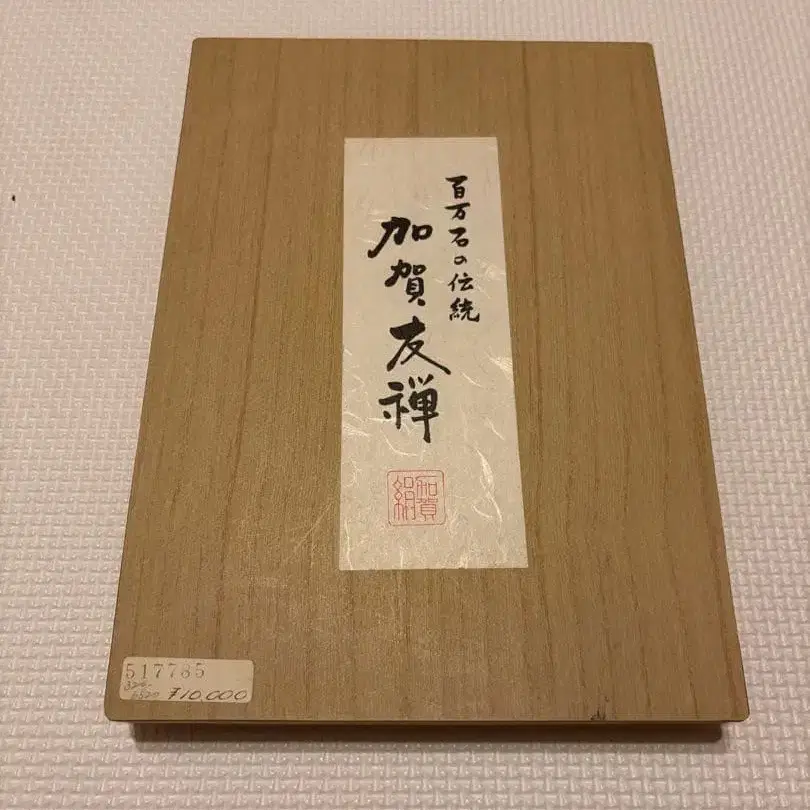 百万石の伝統
加賀友禅
加賀
絹
517785
¥10,000